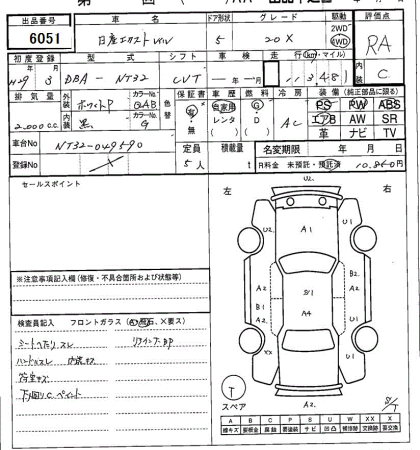 出品番号 車名 ドア形状 グレード 駆動 評価点
6051 日産エクストレイル 5 20X 2WD 4WD RA
初度登録 型式 シフト 車検 走行(km・マイル) 内装
H29年 3月 DBA-NT32 CVT 年 月 11,348 C
排気量 外装 ホワイトP カラーNo. QAB 色替 保証書 車歴 燃料 冷房 装備(純正部品に限る)
2,000cc 内装 黒 カラーNo. G 有・無 自家用 レンタ ( ) G D ( ) AC PS PW ABS
エアB AW SR
革 ナビ TV
車台No NT32-049590 定員 積載量 名変期限 年 月 日
登録No 5人 t R料金 未預託・預託済 10,860円
セールスポイント
左 右
U2.
U2. A1 U1
A2 S/1 B2
B1 A4 A2
A2
XX U1
T スペア A2. S/T
※注意事項記入欄(修復・不具合箇所および状態等)
検査員記入 フロントガラス(A,飛石,X要ス)
シートヘタリ スレ リヤインナーBP
ハンドルスレ 内装キズ
荷室キズ
下廻りC.ペイント
A B C P S U W XX X
線キズ 要板金 腐蝕 要塗装 サビ 凹凸 補修跡 交換跡 要交換